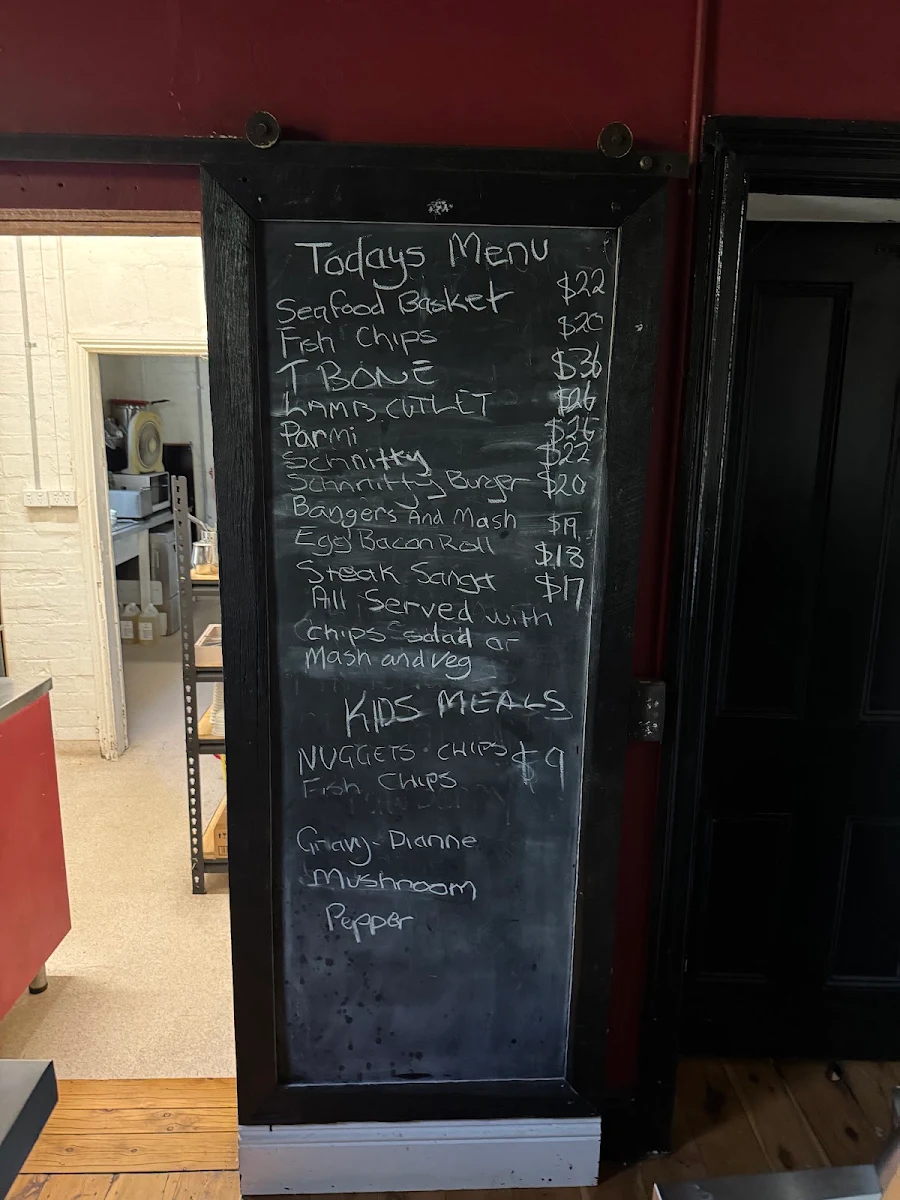 Todays Menu
Seafood Basket $22
Fish Chips $20
T BONE $36
LAMB CUTLET $26
Parmi $26
Schnitty $22
Schnnitty Burger $20
Bangers And Mash $19
Egg Bacon Roll $18
Steak Sangt $17
All Served with
chips salad or
Mash and veg
KIDS MEALS
NUGGETS CHIPS $9
Fish CHIPS
Gravy-Dianne
Mushroom
Pepper